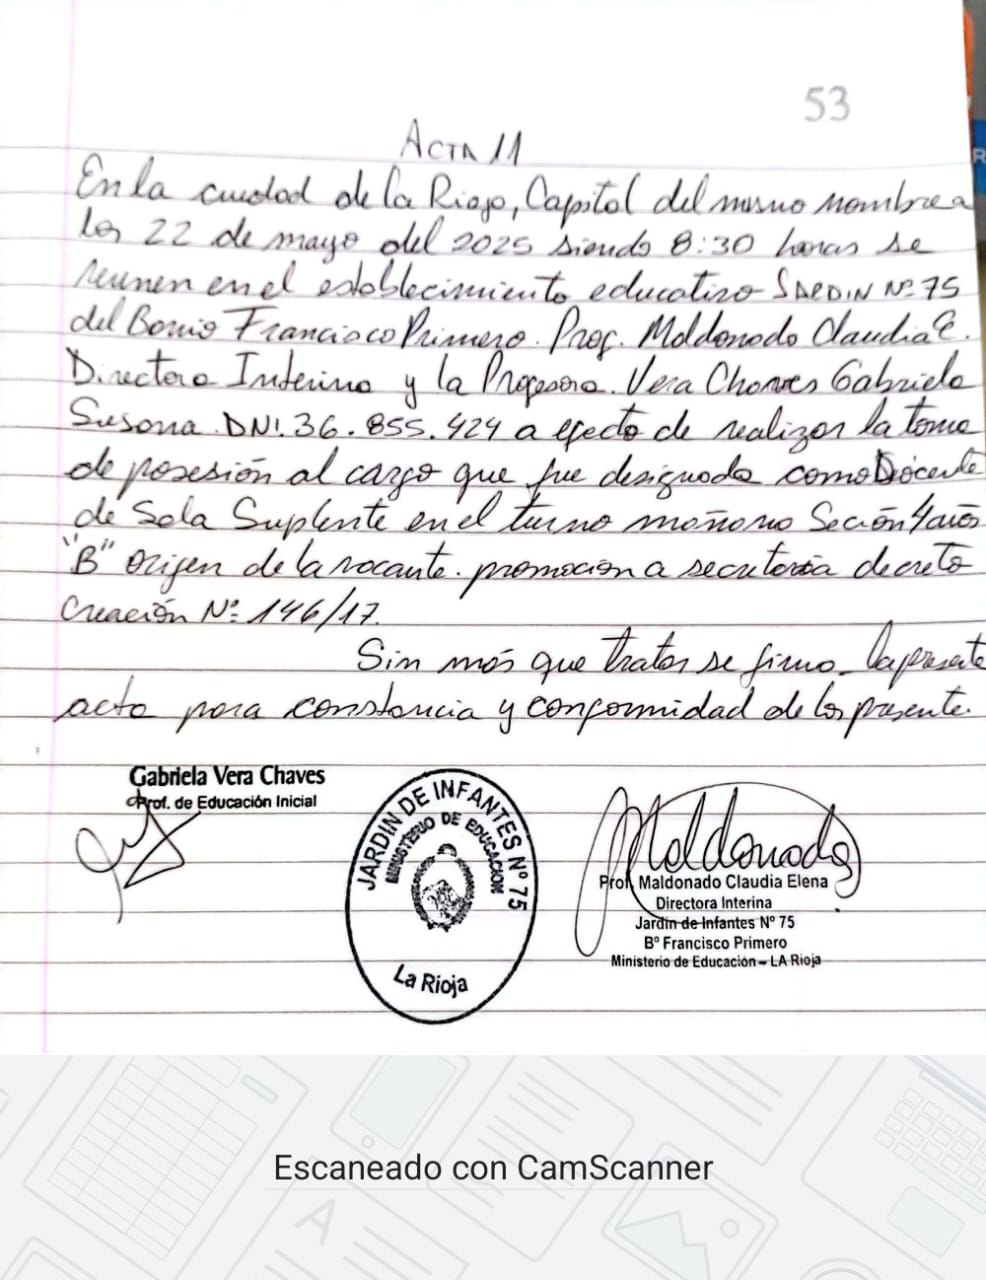 53
ACTA 11
En la ciudad de la Rioja, Capital del mismo nombre a
los 22 de mayo del 2025 siendo 8:30 horas se
reunen en el establecimiento educativo JARDIN Nº 75
del Barrio Francisco Primero. Prof. Maldonado Claudia E.
Directora Interina y la Profesora. Vera Chaves Gabriela
Susana. DNI. 36.855.424 a efecto de realizar la toma
de posesión al cargo que fue designada como Docente
de Sala Suplente en el turno mañana Sección 4 años
"B" Origen de la vacante. promocion a secretaria decreto
Creación Nº 146/17.
Sin más que tratar se firma la presente
acta para constancia y conformidad de los presente.
Gabriela Vera Chaves
Prof. de Educación Inicial
JARDIN DE INFANTES Nº 75
MINISTERIO DE EDUCACION
La Rioja
Maldonado
Prof. Maldonado Claudia Elena
Directora Interina
Jardín de Infantes Nº 75
Bº Francisco Primero
Ministerio de Educación – LA Rioja
Escaneado con CamScanner